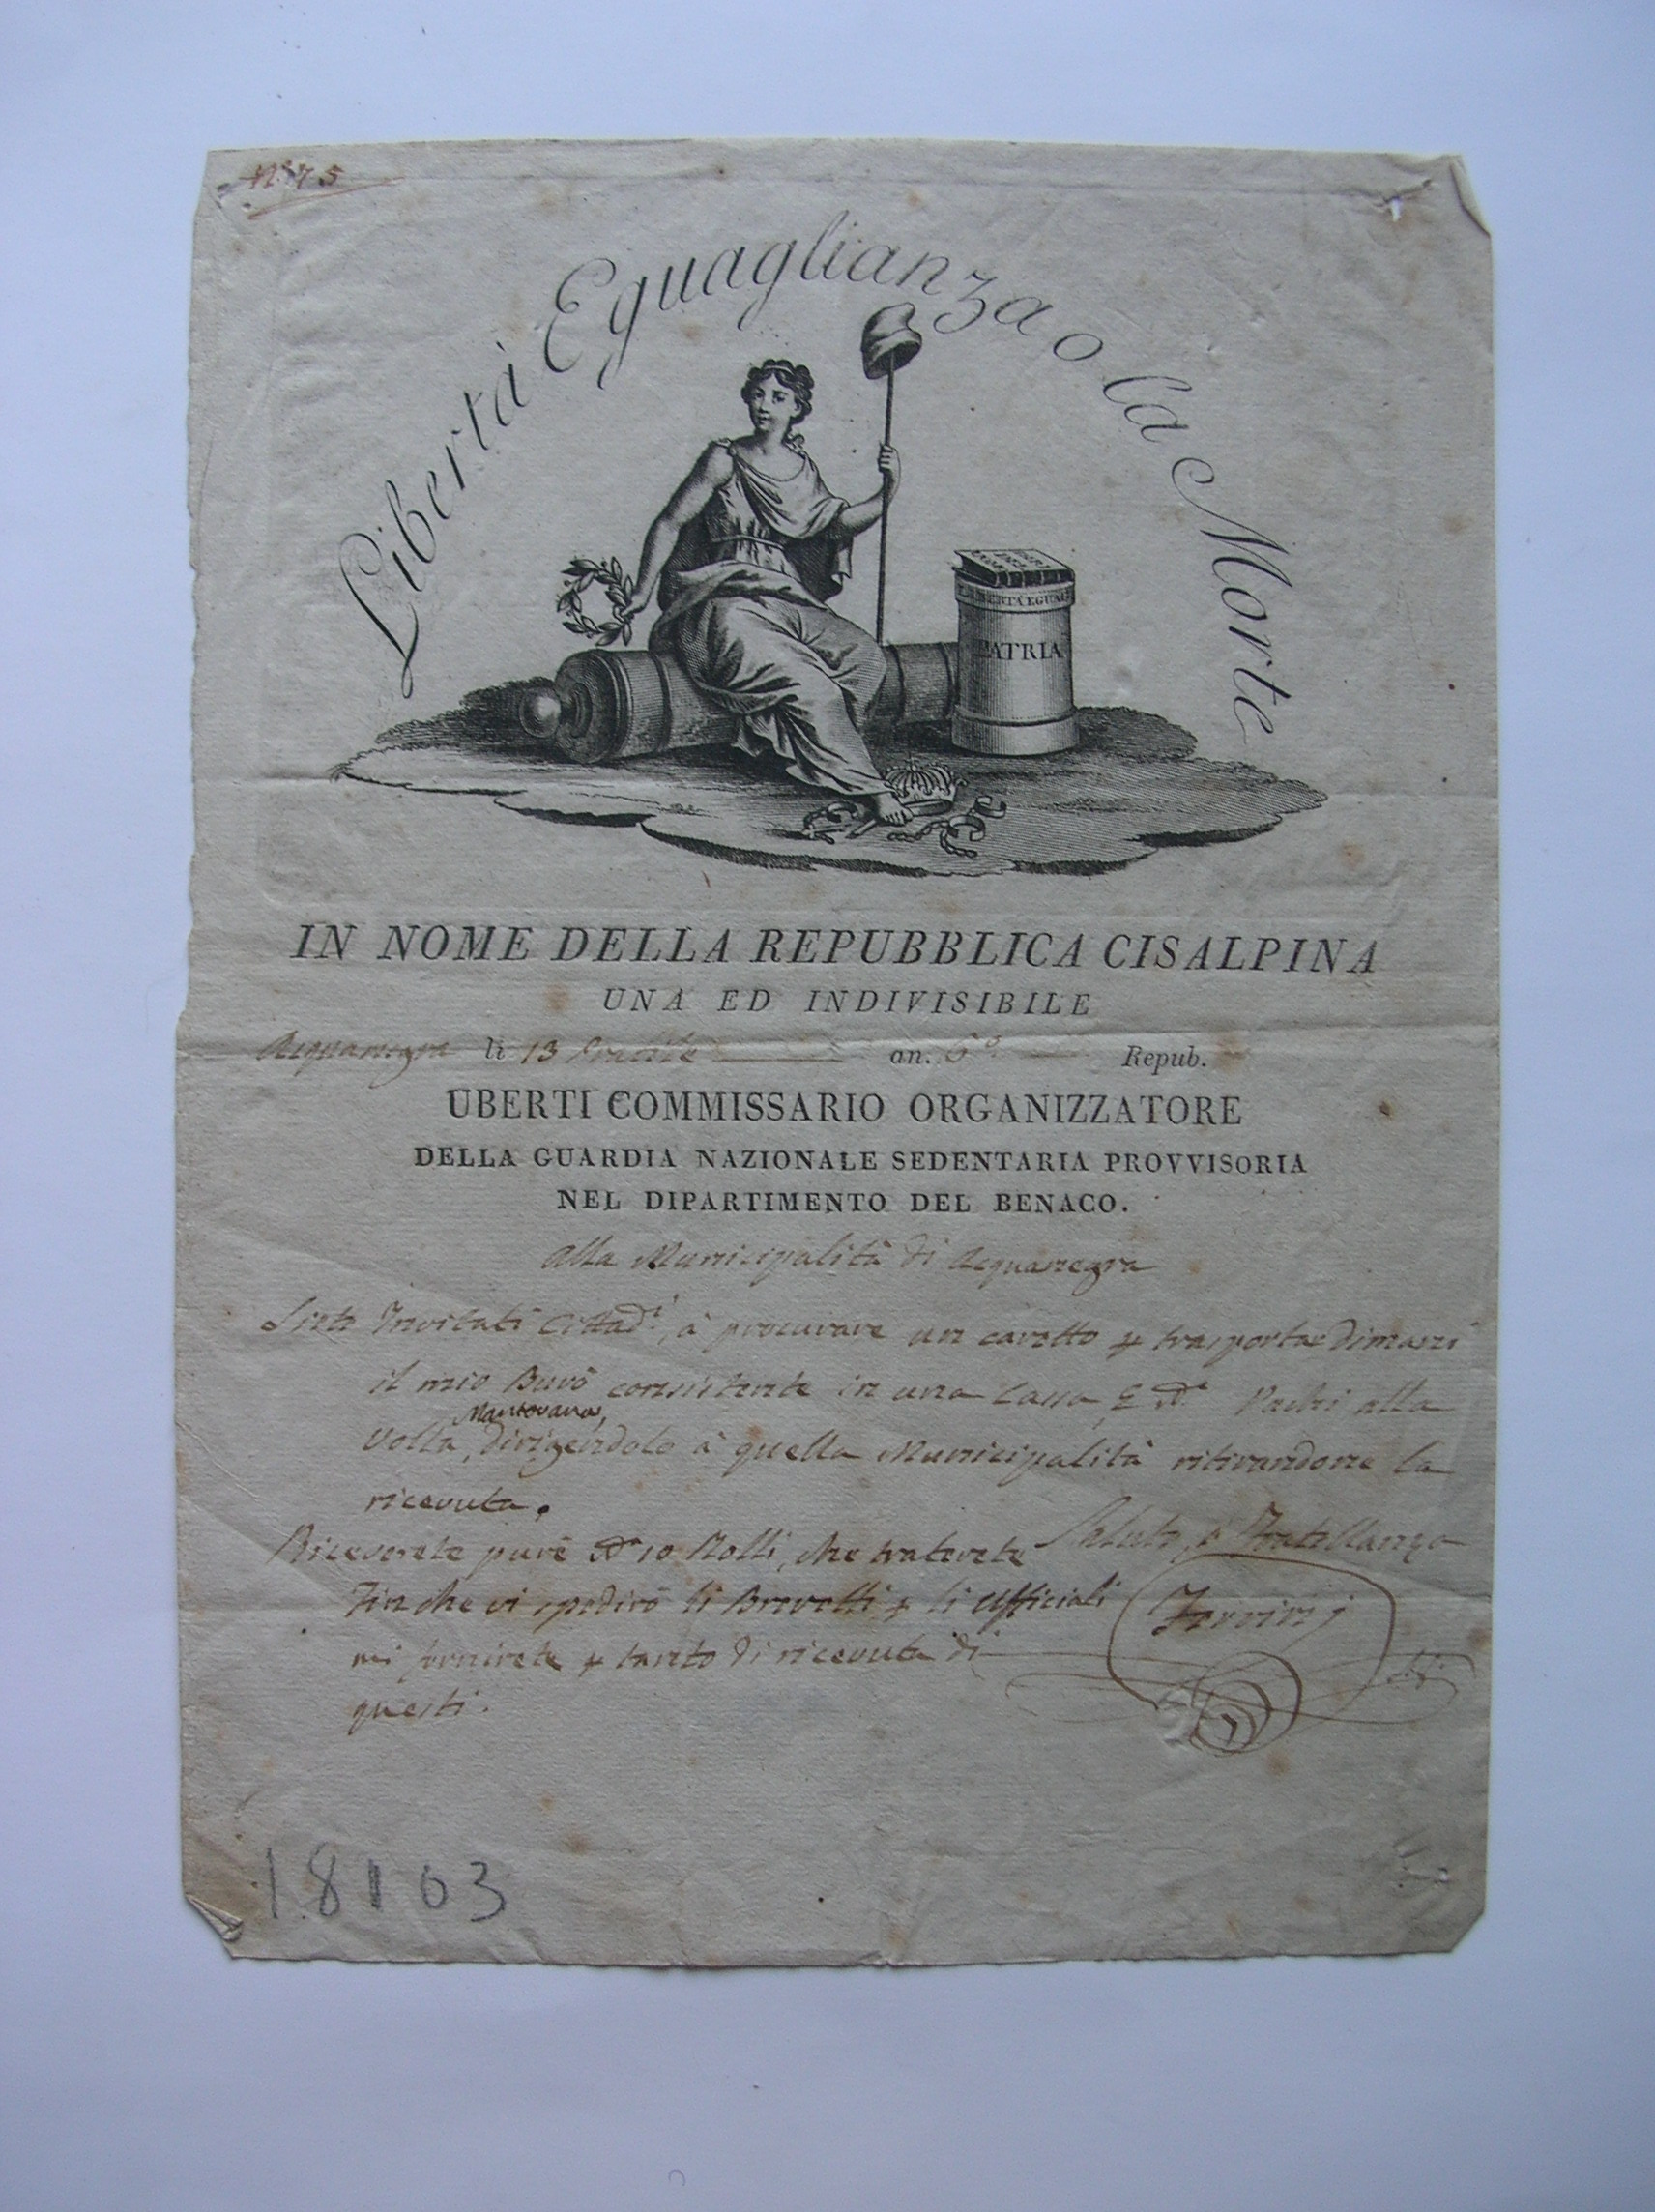 N.° 75
Libertà Eguaglianza o la Morte
LIBERTÀ EGUAG
PATRIA
IN NOME DELLA REPUBBLICA CISALPINA
UNA ED INDIVISIBILE
Acquanegra li 13 an. 6° Repub.
UBERTI COMMISSARIO ORGANIZZATORE
DELLA GUARDIA NAZIONALE SEDENTARIA PROVVISORIA
NEL DIPARTIMENTO DEL BENACO.
Alla Municipalità di Acquanegra
Siete Invitati Cittad.i, à procurare un caretto trasportar dimani
il mio Burò consistente in una Cassa, E Pachi alla
Mantovana,
Volta, dirigendolo à quella Municipalità ritirandone la
ricevuta.
Riceverete pure 10 Rolli, che traterete Salute, è Fratellanza
Finche vi spedirò li Brevetti li Ufficiali
mi fornirete tanto di ricevuta di
questi.
18103